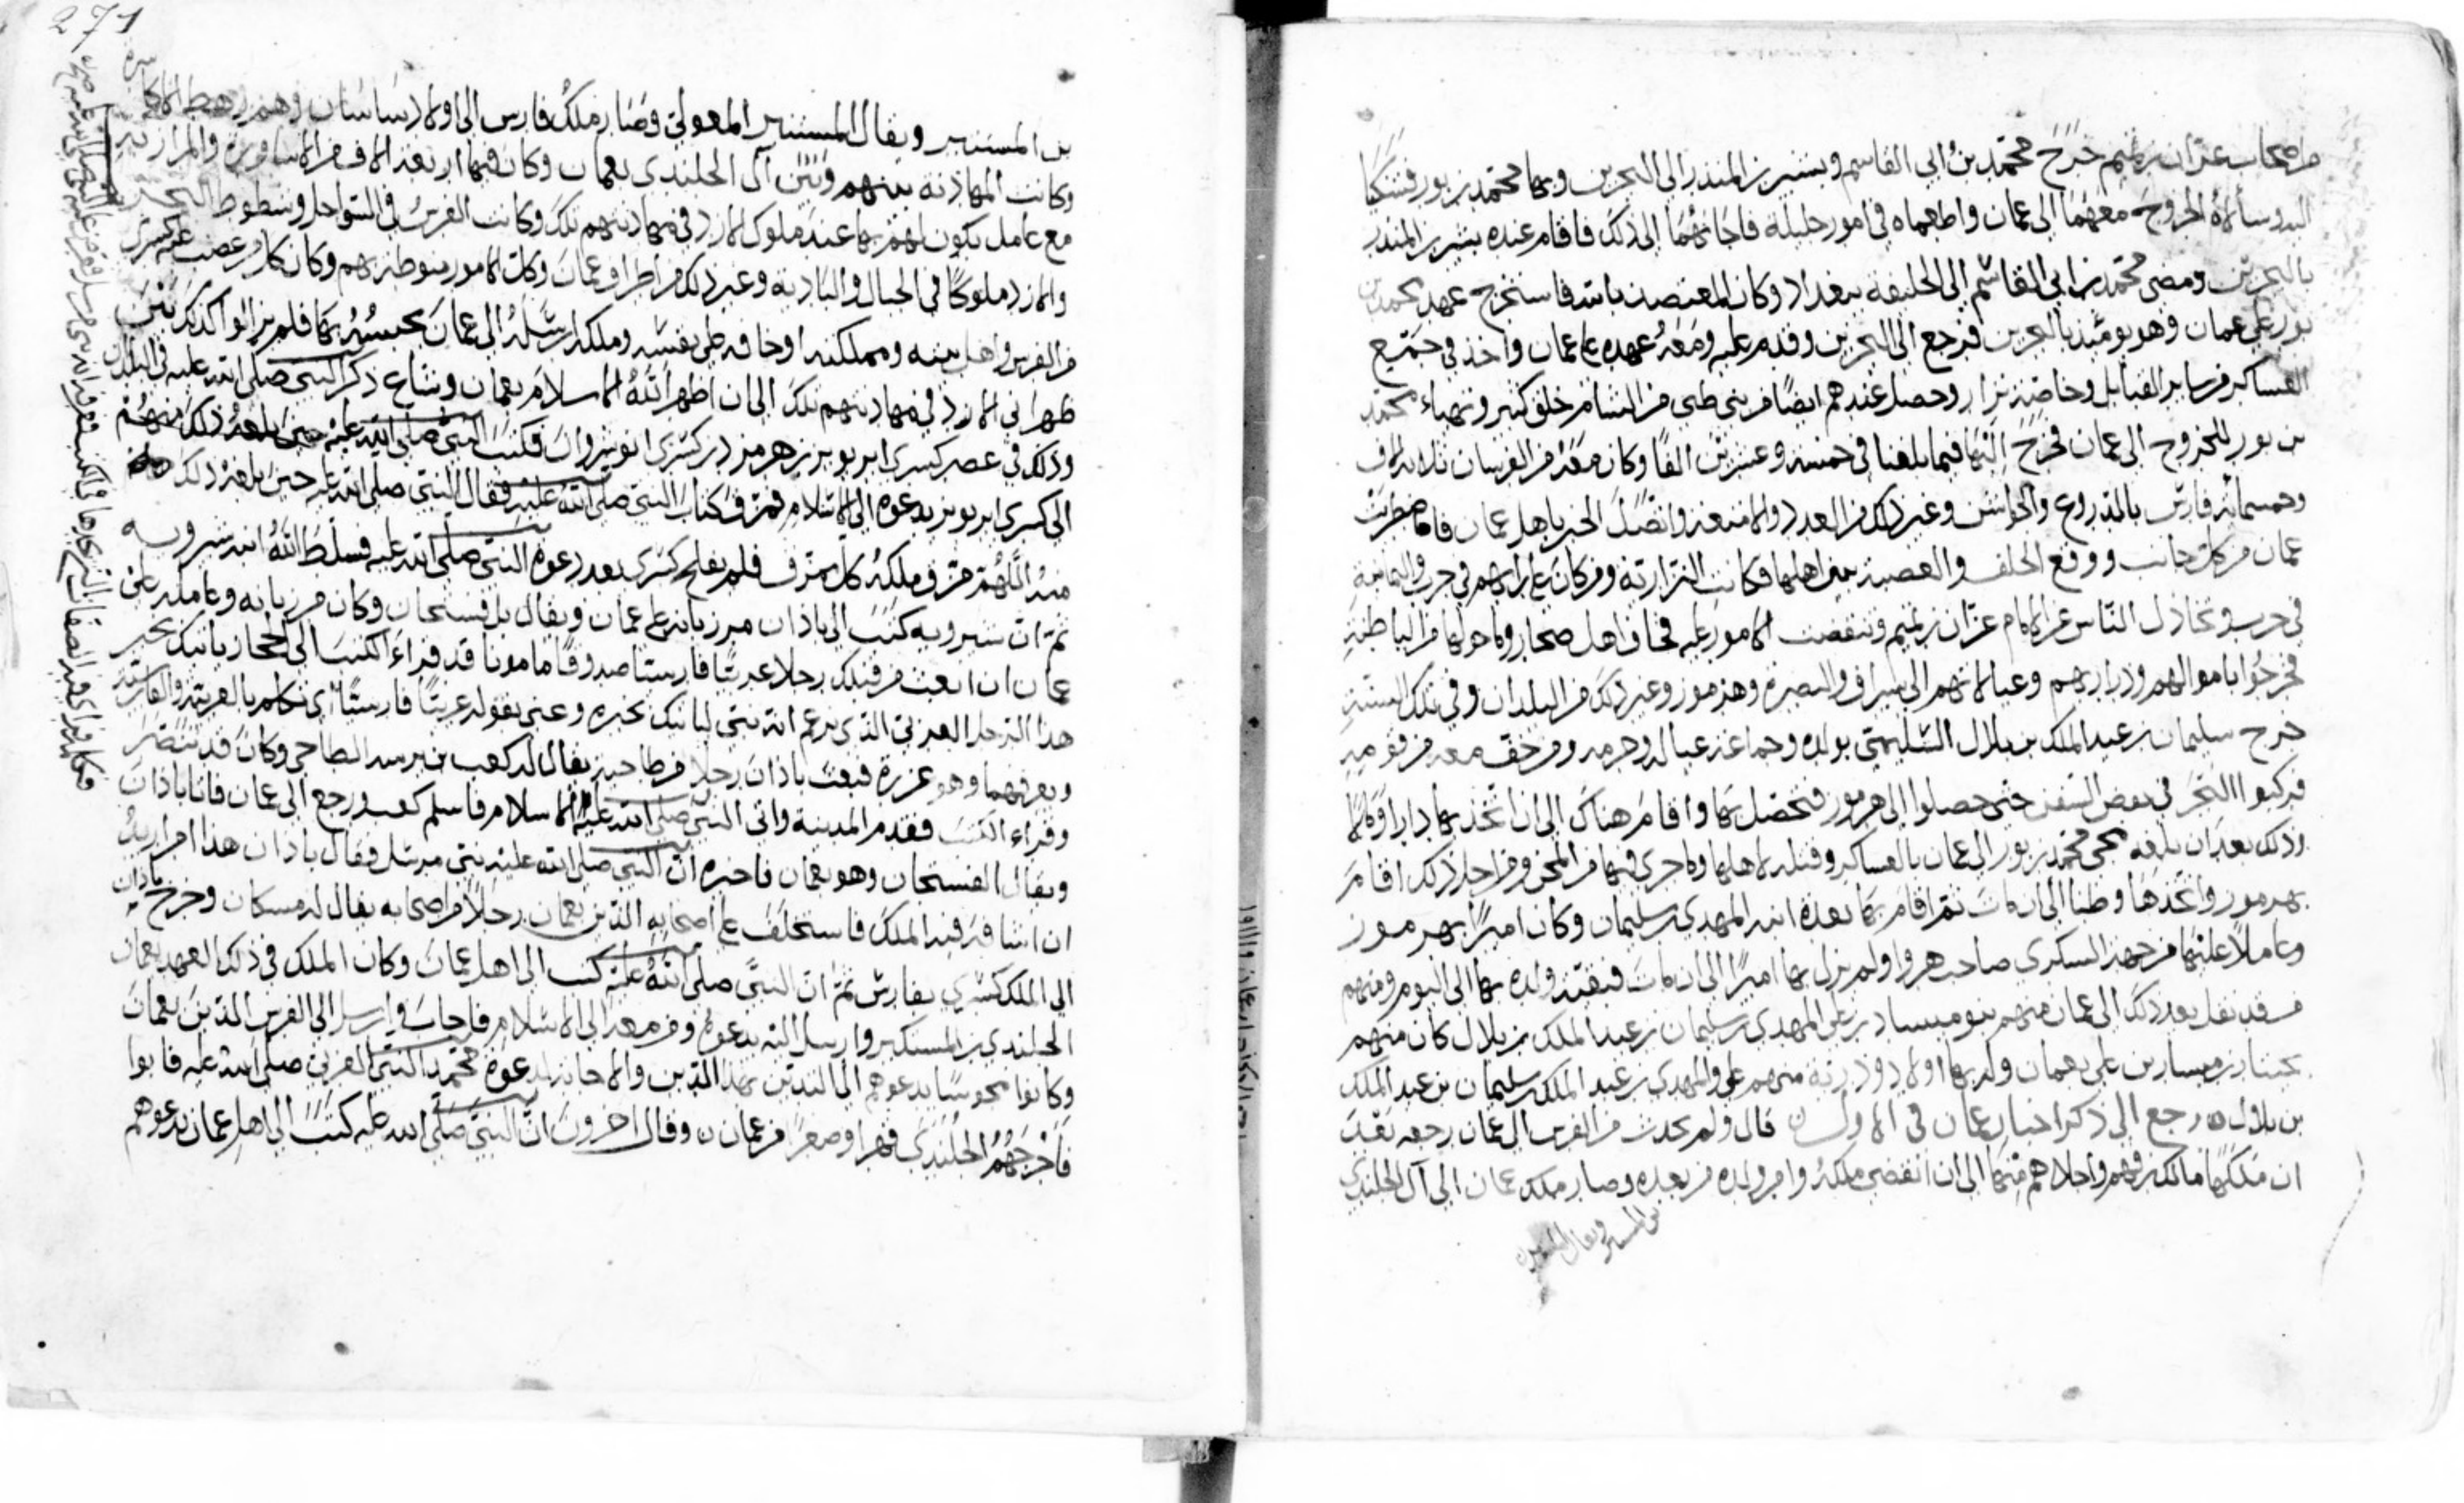 من اصحاب عزان بن تميم خرج محمد بن ابي القاسم وبشير بن المنذر الى البحرين وبها محمد بن بور فشكيا
اليه وسألاه الخروج معهما الى عمان واطمعاه في امور جليلة فاجابهما الى ذلك فاقام عنده بشير بن المنذر
بالبحرين ومضى محمد بن ابي القاسم الى الخليفة ببغداد وكان المعتضد بالله فاستخرج عهد محمد بن
بور على عمان وهو يومئذ بالبحرين فرجع الى البحرين وقدم عليه ومعه عهده على عمان واخذ في جميع
العساكر من ساير القبايل وخاصة نزار وحصل عندهم ايضا من بني طي من الشام خلق كثير وتهياء محمد
بن بور للخروج الى عمان فخرج اليها فيما بلغنا في خمسة وعشرين الفا وكان معه من الفرسان ثلاثة الاف
وخمسمائة فارس بالدروع والجواشن وغير ذلك من العدد والامتعة واتصل الخبر باهل عمان فاضطربت
عمان من كل جانب ووقع الخلف والعصبة بين اهلها فكانت النزارية ومن كان على رايهم في حرب واليمانية
في حرب وتخاذل الناس عن الامام عزان بن تميم وتنقضت الامور عليه فخاف اهل صحار وما حولها من الباطنة
فخرجوا باموالهم وذراريهم وعيالاتهم الى سيراف والبصرة وهرموز وغير ذلك من البلدان وفي تلك السنة
خرج سليمان بن عبد الملك بن بلال السليمي بولده وجماعة عياله وحرمه ومن خف معه من قومه
فركبوا البحر في بعض السفن حتى حصلوا الى هرموز فتحصل بها واقام هناك الى ان اتخذ بها دارا ومالا
وذلك بعد ان بلغه مجي محمد بن بور الى عمان بالعساكر وقتله لاهلها وما جرى فيها من المحن ومن اجل ذلك اقام
بهرموز واتخذها وطنا الى ان مات ثم اقام بها بعده ابنه المهدي بن سليمان وكان اميرا بهرموز
وعاملا عليها من جهة السكري صاحب هروا ولم يزل بها اميرا الى ان مات فبقيته ولده بها الى اليوم ومنهم
من قد نقل بعد ذلك الى عمان منهم بنو ميسار بن علي المهدي بن سليمان بن عبد الملك بن بلال كان منهم
بختيار بن ميسار بن علي بعمان وله بها اولاد وذرية منهم علي والمهدي بن عبد الملك بن سليمان بن عبد الملك
بن بلال رجع الى ذكر اخبار عمان في الاول قال ولم يحدث من الفرس الى عمان رجعة بعد
ان ملكها مالك بن فهم واجلاهم منها الى ان انقضى ملكه وامر ولده من بعده وصار ملك عمان الى آل الجلندى
بن المستنير ويقال المستنير
271
بن المستنير ويقال المستنير المعولي وصار ملك فارس الى اولاد ساسان وهم رهط الاكاسرة
وكانت المهادنة بينهم وبين آل الجلندى بعمان وكان فيها اربعة الاف من الاساورة والمرازبة
مع عامل يكون لهم بها عند ملوك الازد في مهادنتهم تلك وكانت الفرس في السواحل وشطوط البحر
والازد ملوكا في الجبال والبادية وغير ذلك من اطراف عمان وكل الامور منوطة بهم وكان كل من غضب عليه كسرى
من الفرس واهل بيته ومملكته او خافه على نفسه وملكه ارسله الى عمان يحبسه بها فلم يزالوا كذلك بين
ظهراني الازد في مهادنتهم تلك الى ان اظهر الله الاسلام بعمان وشاع ذكر النبي صلى الله عليه في البلدان
وذلك في عصر كسرى ابرويز بن هرمز بن كسرى انوشروان فكتب النبي صلى الله عليه
الى كسرى ابرويز يدعوه الى الاسلام فمزق كتاب النبي صلى الله عليه فقال النبي صلى الله عليه حين بلغه ذلك
منه اللهم مزق ملكه كل ممزق فلم يفلح كسرى بعد دعوة النبي صلى الله عليه فسلط الله ابنه شيرويه
ثم ان شيرويه كتب الى باذان مرزبانه على عمان ويقال بل فستجان وكان مرزبانه وعامله على
عمان ان ابعث من قبلك رجلا عربيا فارسيا صدوقا مامونا قد قراء الكتب الى الحجاز ياتيك بخبر
هذا الرجل العربي الذي يزعم انه نبي لياتيك بخبره وعنى بقوله عربيا فارسيا اي تكلم بالعربية والفارسية
ويعرفهما فبعث باذان رجلا من طاحية يقال له كعب بن برشه الطاحي وكان قد تنصر
وقراء الكتب فقدم المدينة واتى النبي صلى الله عليه الاسلام فاسلم كعب ورجع الى عمان فاتا باذان
ويقال الفستجان وهو بعمان فاخبره ان النبي صلى الله عليه نبي مرسل فقال باذان هذا امر اريد
ان اشافه فيه الملك فاستخلف على اصحابه الذين بعمان رجلا من اصحابه يقال له مسكان وخرج باذان
الى الملك كسرى بفارس ثم ان النبي صلى الله عليه كتب الى اهل عمان وكان الملك في ذلك العهد بعمان
الجلندى بن المستكبر وارسل اليه يدعوه ومن معه الى الاسلام فاجاب وارسل الى الفرس الذين بعمان
وكانوا مجوسا يدعوهم الى التدين بهذا الدين والاجابة لدعوة محمد النبي العربي صلى الله عليه فابوا
فاخرجهم الجلندى قهرا وصغرا من عمان وقال اخرون ان النبي صلى الله عليه كتب الى اهل عمان يدعوهم